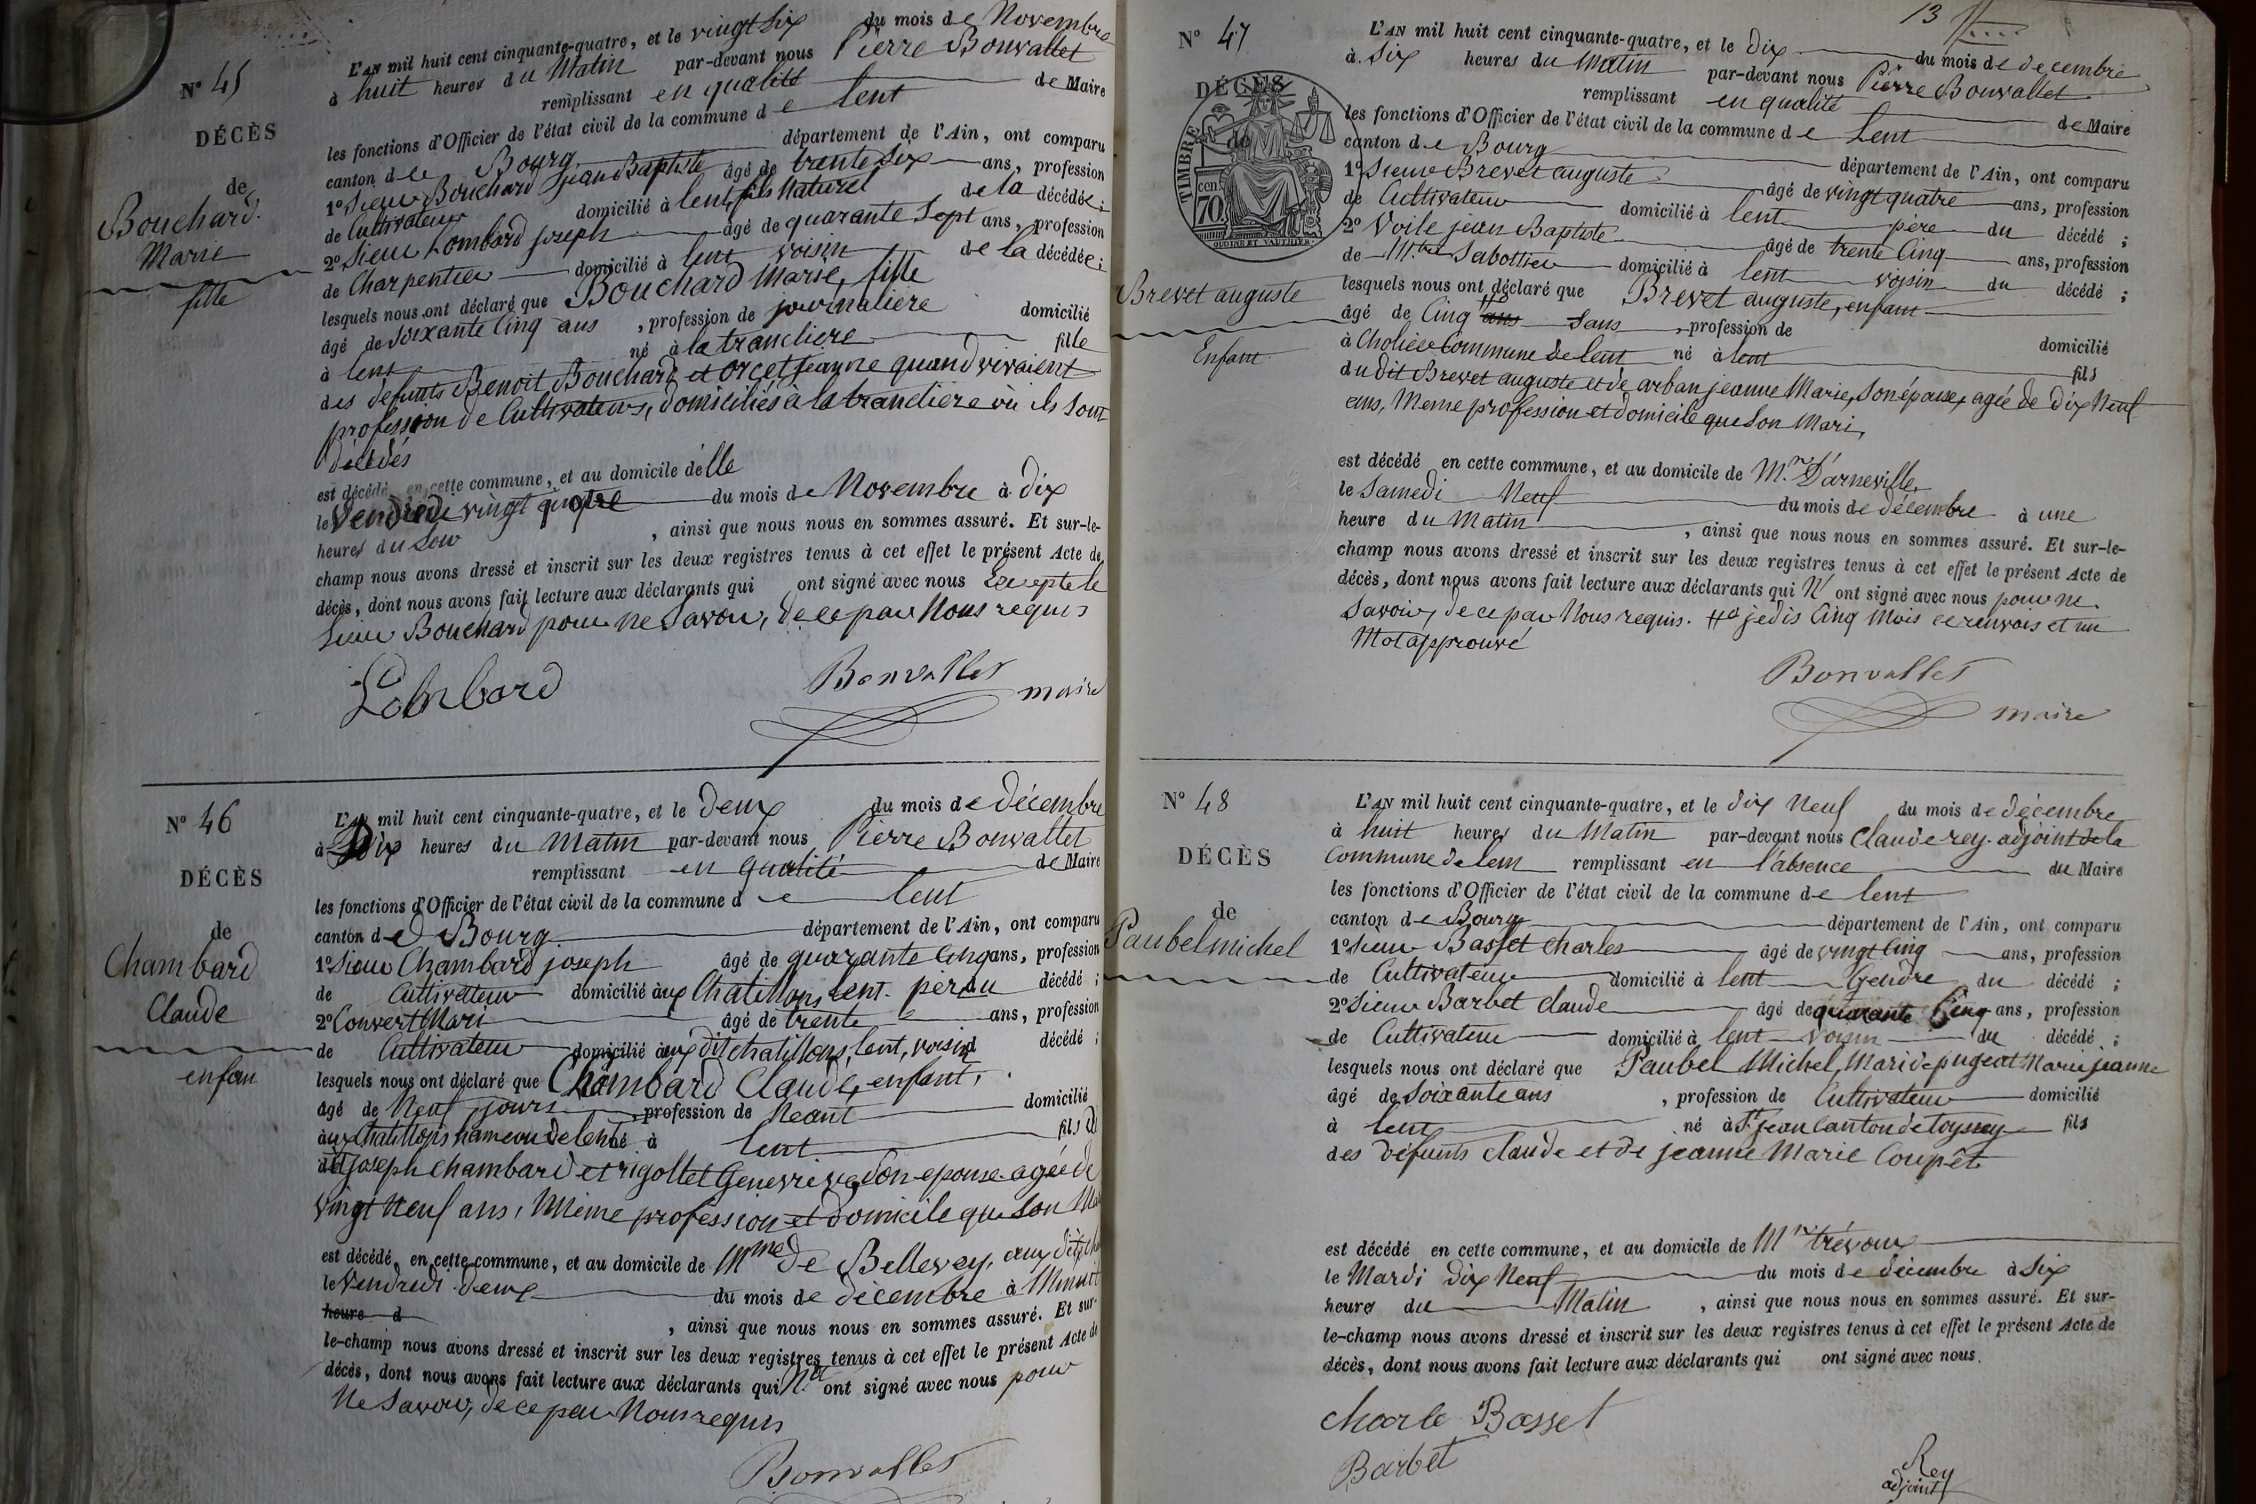 N° 45
DÉCÈS
de
Bouchard
Marie
fille
L'AN mil huit cent cinquante-quatre, et le vingt Six du mois de Novembre
à huit heures du Matin par-devant nous Pierre Bonvallet
remplissant en qualité de Maire
les fonctions d'Officier de l'état civil de la commune de lent
canton de Bourg département de l'Ain, ont comparu
1° Sieur Bouchard Jean Baptiste âgé de trente Six ans, profession
de Cultivateur domicilié à lent, fils Naturel de la décédée;
2° Sieur Lombard joseph âgé de quarante Sept ans, profession
de Charpentier domicilié à lent voisin de la décédée;
lesquels nous ont déclaré que Bouchard Marie, fille
âgé de Soixante Cinq ans, profession de journaliere domicilié
à lent né à la trancliere fille
des défunts Benoit Bouchard et Orcet Jeanne quand vivaient
profession de Cultivateurs, domiciliés à la trancliere où ils sont
décédés
est décédé en cette commune, et au domicile d'elle
le Vendredi vingt quatre du mois de Novembre à dix
heures du Soir, ainsi que nous nous en sommes assuré. Et sur-le-
champ nous avons dressé et inscrit sur les deux registres tenus à cet effet le présent Acte de
décès, dont nous avons fait lecture aux déclarants qui ont signé avec nous Excepté le
Sieur Bouchard pour ne Savoir, de ce par Nous requis
Lombard Bonvallet maire
N° 46
DÉCÈS
de
Chambard
Claude
enfan
L'AN mil huit cent cinquante-quatre, et le deux du mois de décembre
à Dix heures du Matin par-devant nous Pierre Bonvallet
remplissant en qualité de Maire
les fonctions d'Officier de l'état civil de la commune de lent
canton de Bourg département de l'Ain, ont comparu
1° Sieur Chambard joseph âgé de quarante Cinq ans, profession
de Cultivateur domicilié aux Chatillons lent. père du décédé;
2° Convert Mari âgé de trente ans, profession
de Cultivateur domicilié aux dit chatillons, lent, voisin d décédé;
lesquels nous ont déclaré que Chambard Claude, enfant,
âgé de Neuf jours profession de Neant domicilié
aux Chatillons hameau de lent né à lent fils du
dit joseph chambard et rigollet Genevieve, Son epouse agée de
vingt Neuf ans, Même profession et domicile que Son Mari
est décédé en cette commune, et au domicile de Mme De Bellevey, aux dits
le Vendredi deux du mois de décembre à Minuit
heure d, ainsi que nous nous en sommes assuré. Et sur-
le-champ nous avons dressé et inscrit sur les deux registres tenus à cet effet le présent Acte de
décès, dont nous avons fait lecture aux déclarants qui N' ont signé avec nous pour
Ne Savoir, de ce par Nous requis
Bonvallet
13
N° 47
DÉCÈS
de
TIMBRE
70 cen
OUDINÉ ET VAUTHIER
Brevet auguste
Enfant
L'AN mil huit cent cinquante-quatre, et le Dix du mois de decembre
à Six heures du Matin par-devant nous Pierre Bonvallet
remplissant en qualité de Maire
les fonctions d'Officier de l'état civil de la commune de Lent
canton de Bourg département de l'Ain, ont comparu
1° Sieur Brevet auguste âgé de vingt quatre ans, profession
de Cultivateur domicilié à lent père du décédé;
2° Voile jean Baptiste âgé de trente Cinq ans, profession
de Mtre Sabottier domicilié à lent voisin du décédé;
lesquels nous ont déclaré que Brevet auguste, enfant
âgé de Cinq ans Sans, profession de domicilié
à Cholier Commune de lent né à lent fils
du dit Brevet auguste et de arban jeanne Marie, Son épouse, agée de Dix Neuf
ans, Meme profession et domicile que Son Mari,
est décédé en cette commune, et au domicile de Mr. D'arneville,
le Samedi Neuf du mois de décembre à une
heure du Matin, ainsi que nous nous en sommes assuré. Et sur-le-
champ nous avons dressé et inscrit sur les deux registres tenus à cet effet le présent Acte de
décès, dont nous avons fait lecture aux déclarants qui N' ont signé avec nous pour ne
Savoir, de ce par Nous requis. je dis Cinq Mois ce renvois et un
Mot approuvé
Bonvallet
maire
N° 48
DÉCÈS
de
Paubel michel
L'AN mil huit cent cinquante-quatre, et le dix Neuf du mois de décembre
à huit heures du Matin par-devant nous Claude rey. adjoint de la
Commune de lent remplissant en l'absence du Maire
les fonctions d'Officier de l'état civil de la commune de lent
canton de Bourg département de l'Ain, ont comparu
1° Sieur Basset charles âgé de vingt Cinq ans, profession
de Cultivateur domicilié à lent Gendre du décédé;
2° Sieur Barbet claude âgé de quarante Cinq ans, profession
de Cultivateur domicilié à lent voisin du décédé;
lesquels nous ont déclaré que Paubel Michel, Mari de pugeat Marie jeanne
âgé de Soixante ans, profession de Cultivateur domicilié
à lent né à St jean Canton de Toyssey fils
des défunts claude et de jeanne Marie Coupêt
est décédé en cette commune, et au domicile de Mr trévoux
le Mardi Dix Neuf du mois de décembre à Six
heures du Matin, ainsi que nous nous en sommes assuré. Et sur-
le-champ nous avons dressé et inscrit sur les deux registres tenus à cet effet le présent Acte de
décès, dont nous avons fait lecture aux déclarants qui ont signé avec nous.
Charle Basset
Barbet
Rey
adjoint